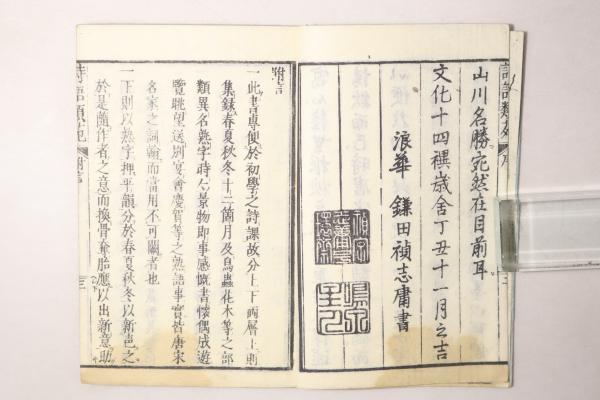 山川名勝宛然在目前耳
文化十四禩歲舍丁丑十一月之吉
浪華 鎌田禎志庸書
附言
一此書專便於初學之詩課故分上下兩層上則
集錄春夏秋冬十二箇月及鳥蟲花木等之部
類異名熟字時令景物即事感慨書懷偶成遊
覽眺望送別宴會慶賀等之熟語事實皆唐宋
名家之詞翰而當用不可闕者也
一下則以熟字押平韻分於春夏秋冬以新造之
於是隨作者之意而換骨奪胎應以出新意助
詩語類苑 附言